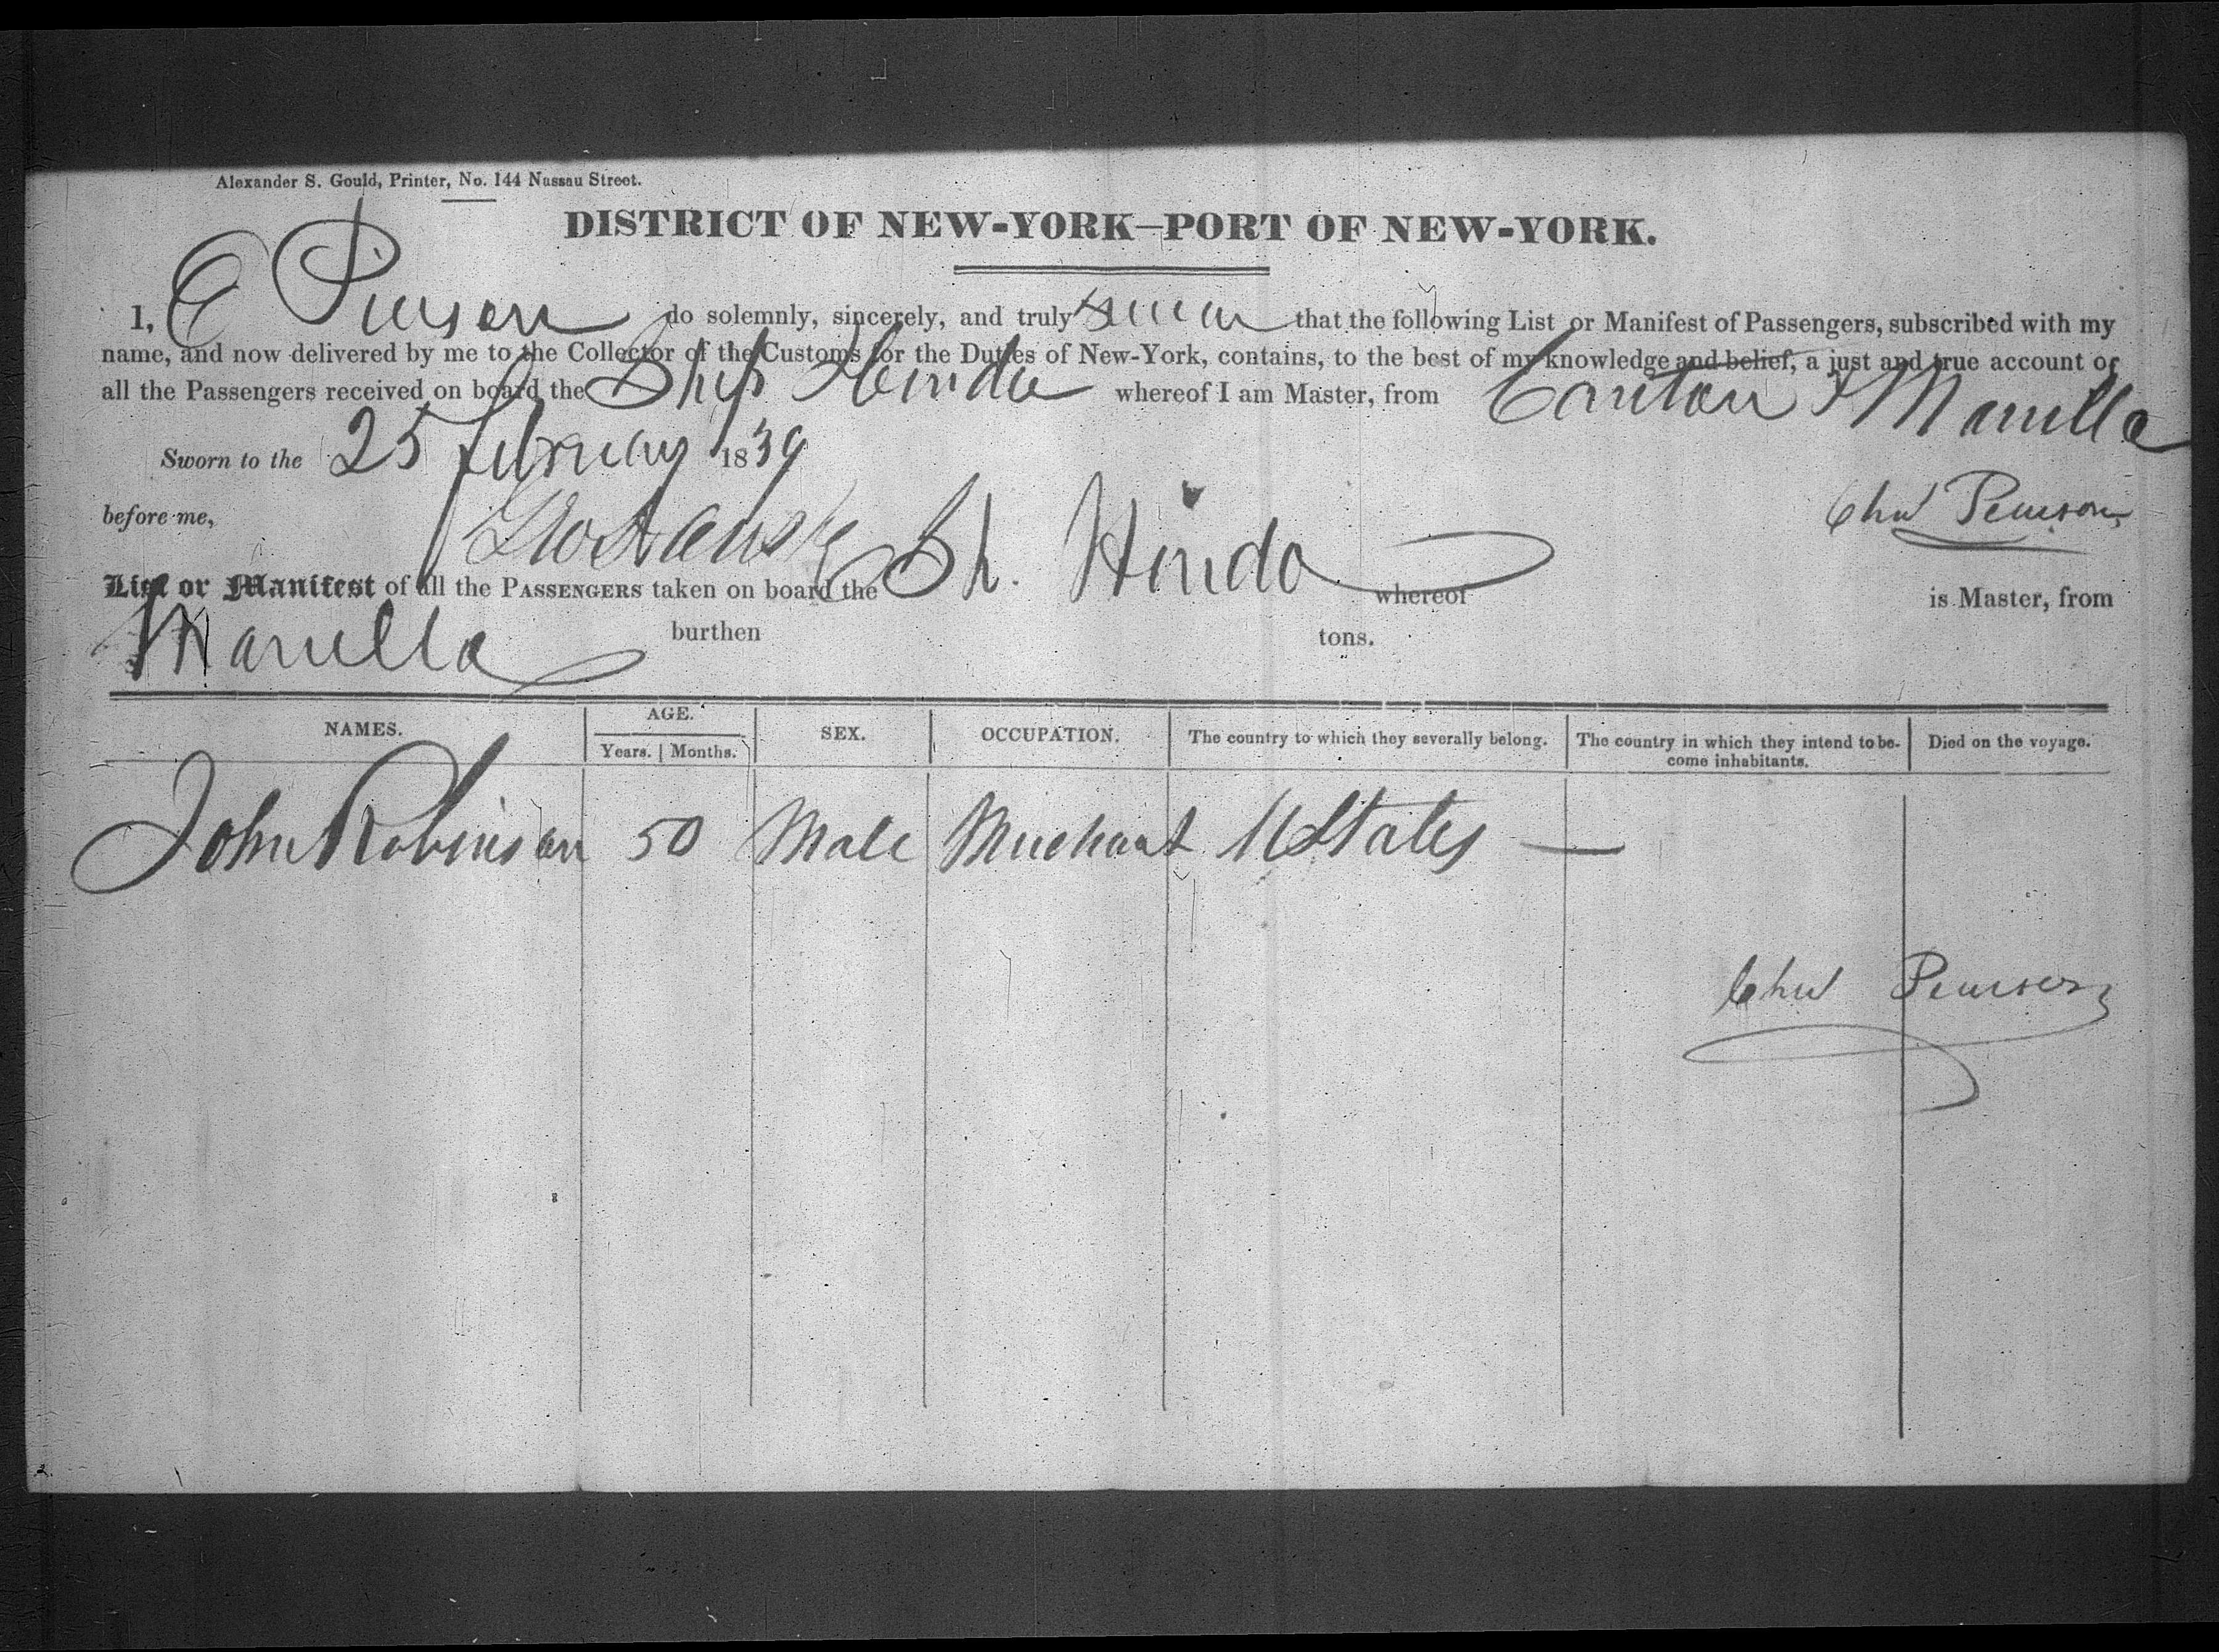 Alexander S. Gould, Printer, No. 144 Nassau Street.
DISTRICT OF NEW-YORK—PORT OF NEW-YORK.
I, C Pearson do solemnly, sincerely, and truly swear that the following List or Manifest of Passengers, subscribed with my
name, and now delivered by me to the Collector of the Customs for the Duties of New-York, contains, to the best of my knowledge and belief, a just and true account of
all the Passengers received on board the Ship Hindu whereof I am Master, from Canton & Manilla
Sworn to the 25 February 1839
before me, Pearson
List or Manifest of all the PASSENGERS taken on board the Sh. Hindo whereof is Master, from
Manilla burthen tons.
NAMES. AGE. SEX. OCCUPATION. The country to which they severally belong. The country in which they intend to be- Died on the voyage.
Years. | Months. come inhabitants.
John Robinson 50 Male Merchant UStates —
Pearson